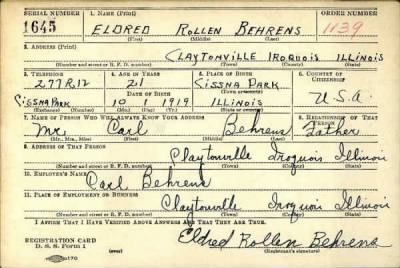 SERIAL NUMBER 1. NAME (Print) ORDER NUMBER
1645 ELDRED ROLLEN BEHRENS 1139
(First) (Middle) (Last)
2. ADDRESS (Print)
CLAYTONVILLE IROQUOIS ILLINOIS
(Number and street or R. F. D. number) (Town) (County) (State)
3. TELEPHONE 4. AGE IN YEARS 5. PLACE OF BIRTH 6. COUNTRY OF CITIZENSHIP
277R12 21 CISSNA PARK
(Town or county)
DATE OF BIRTH
CISSNA PARK 10 1 1919 ILLINOIS U.S.A
(Exchange) (Number) (Mo.) (Day) (Yr.) (State or country)
7. NAME OF PERSON WHO WILL ALWAYS KNOW YOUR ADDRESS 8. RELATIONSHIP OF THAT PERSON
Mr. Carl Behrens Father
(Mr., Mrs., Miss) (First) (Middle) (Last)
9. ADDRESS OF THAT PERSON
Claytonville Iroquois Illinois
(Number and street or R. F. D. number) (Town) (County) (State)
10. EMPLOYER'S NAME
Carl Behrens
11. PLACE OF EMPLOYMENT OR BUSINESS
Claytonville Iroquois Illinois
(Number and street or R. F. D. number) (Town) (County) (State)
I AFFIRM THAT I HAVE VERIFIED ABOVE ANSWERS AND THAT THEY ARE TRUE.
REGISTRATION CARD
D. S. S. Form 1 Eldred Rollen Behrens
(over) (Registrant's signature)